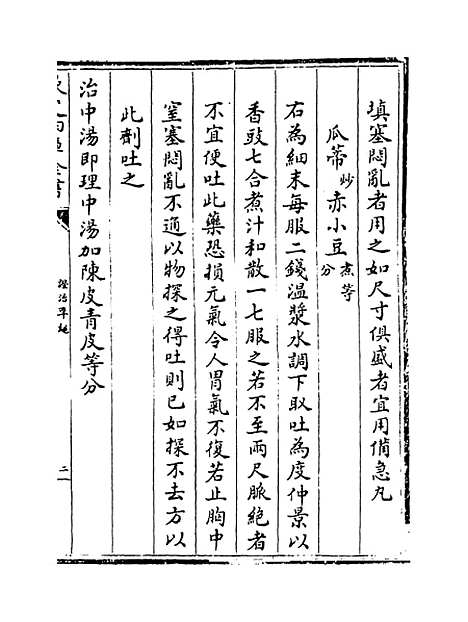 填塞悶亂者用之如尺寸俱盛者宜用備急丸
瓜蒂炒赤小豆煮等分
右為細末每服二錢温漿水調下取吐為度仲景以
香豉七合煮汁和散一七服之若不至兩尺脈絶者
不宜便吐此藥恐損元氣令人胃氣不復若止胸中
窒塞悶亂不通以物探之得吐則已如探不去方以
此劑吐之
治中湯即理中湯加陳皮青皮等分
證治準繩
二